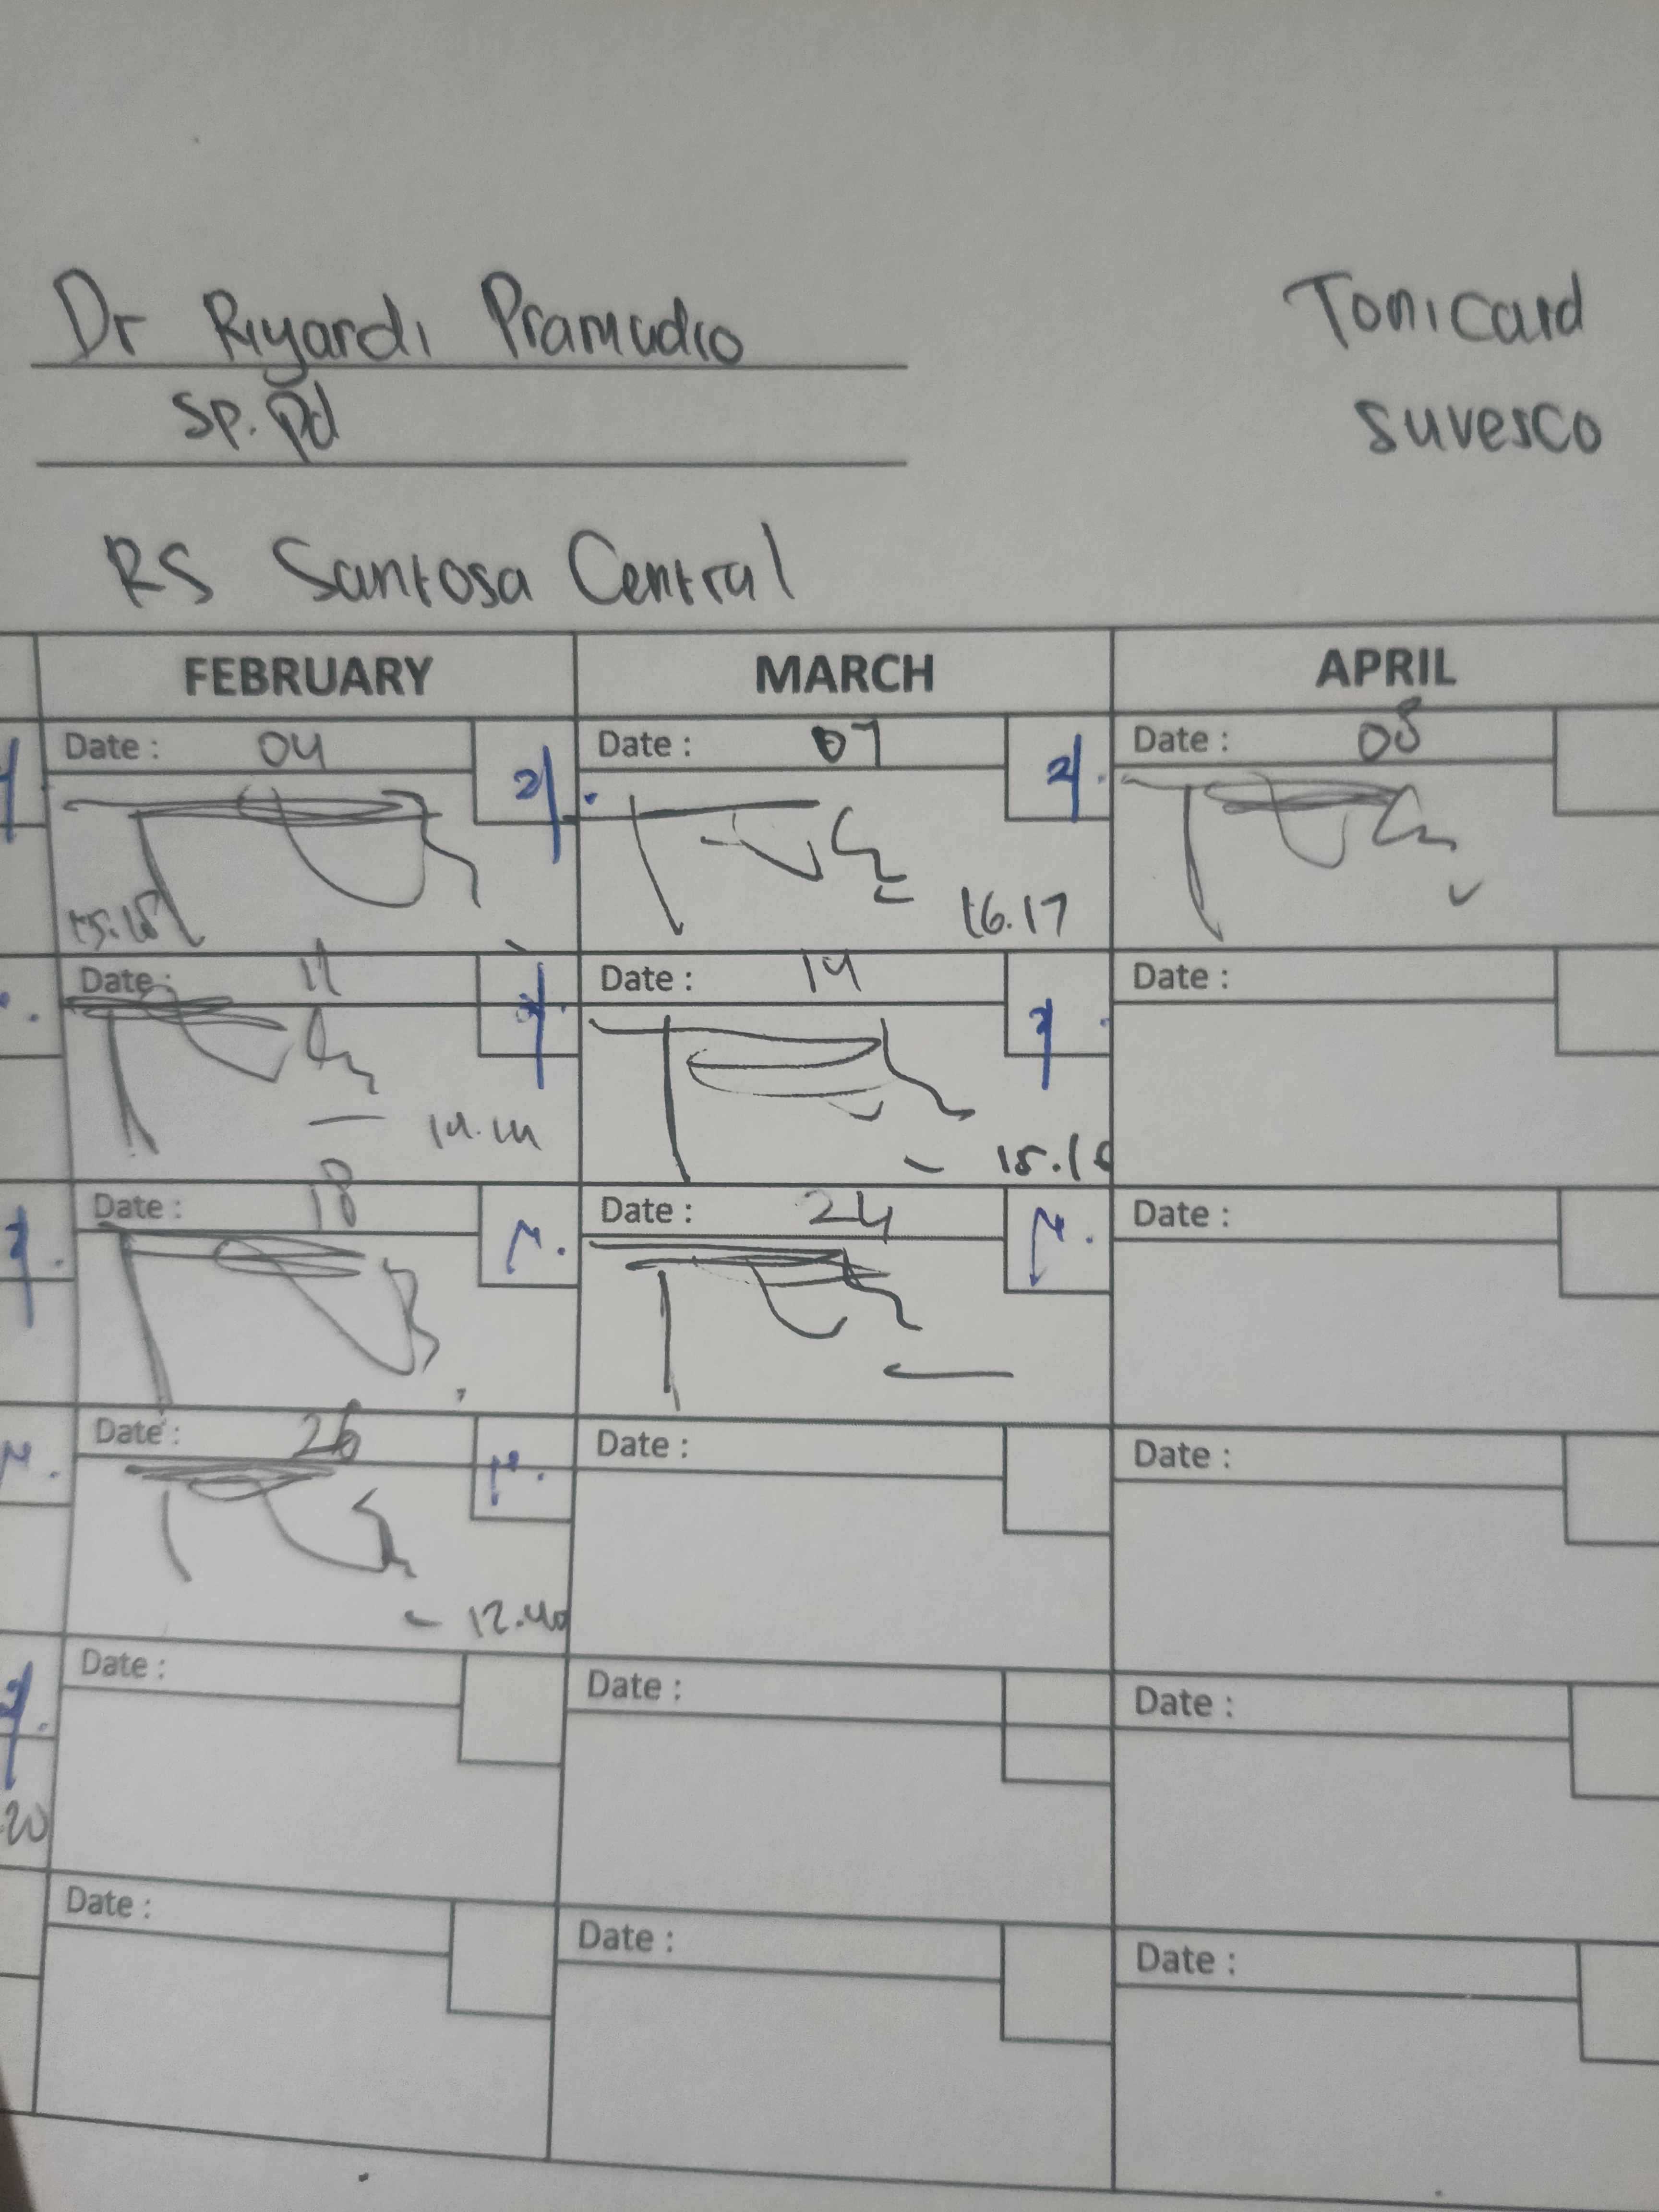 Dr Riyardi Pramudio
Tonicard
Sp.Pd
suvesco
RS Santosa Central
FEBRUARY MARCH APRIL
Date : 04 Date : 07 Date : 08
15.15 16.17
Date : 11 Date : 14 Date :
14.14 15.16
Date : 18 Date : 24 Date :
Date : 26 Date : Date :
12.40
Date : Date : Date :
20
Date : Date : Date :